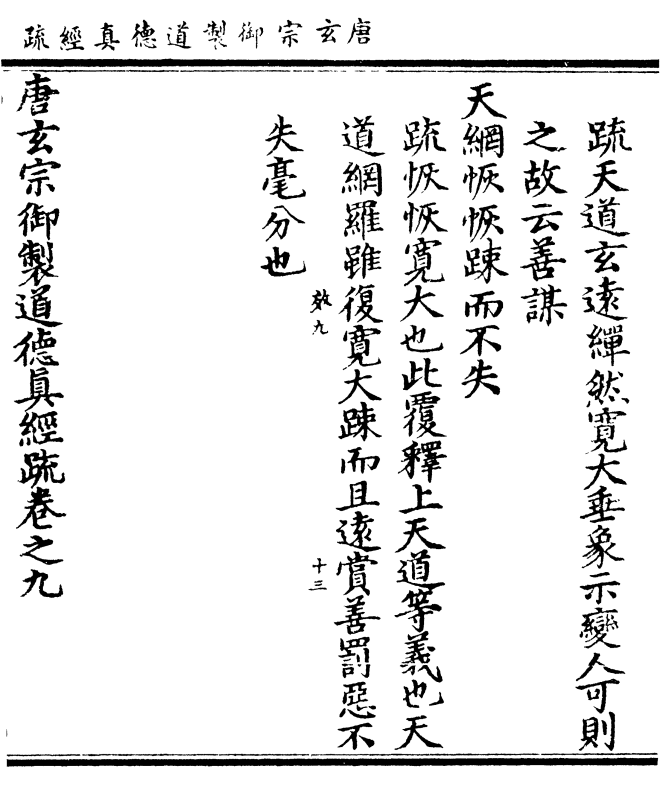 唐玄宗御製道德真經疏
疏天道玄遠繟然寬大垂象示變人可則
之故云善謀
天網恢恢踈而不失
疏恢恢寬大也此覆釋上天道等義也天
道網羅雖復寬大踈而且遠賞善罰惡不
效九
十三
失毫分也
唐玄宗御製道德真經疏卷之九